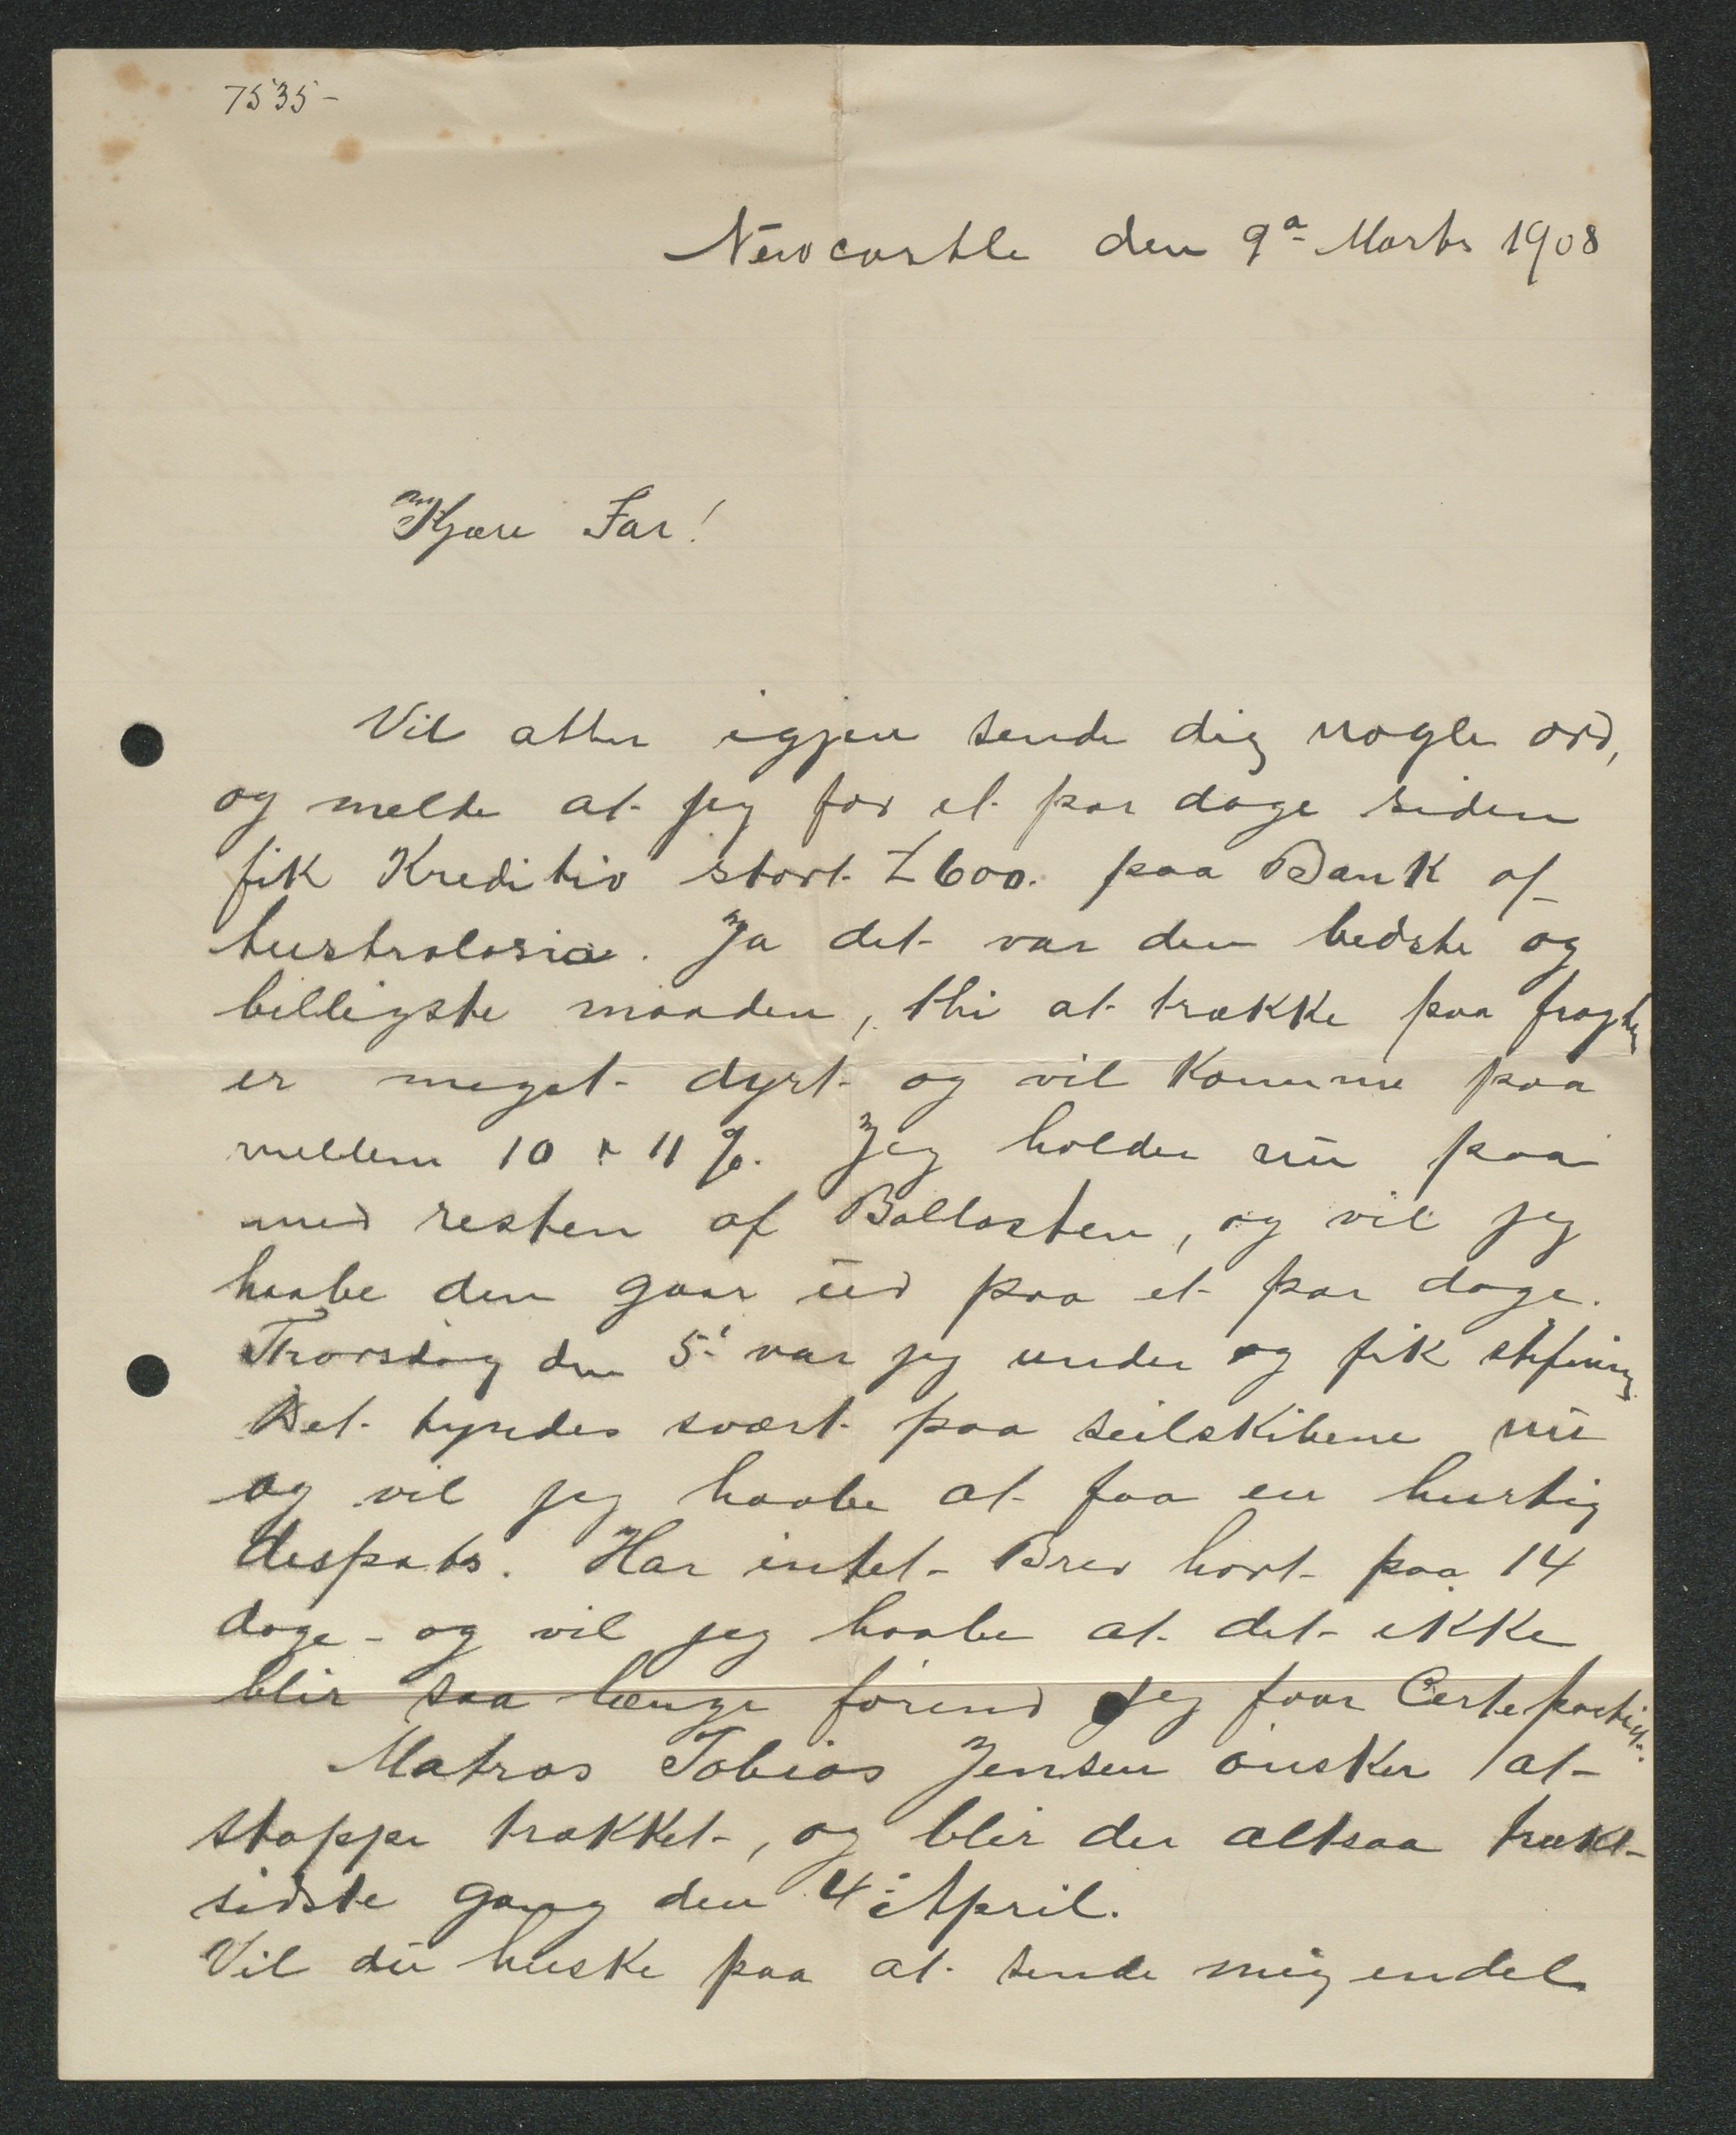 7535-
Newcastle den 9de Marts 1908
Kjære Far!
Vil atter igjen sende dig nogle ord,
og melde at jeg for et par dage siden
fik Kreditiv stort £600. paa Bank of
Australasia. Ja det var den bedste og
billigste maaden, thi at trække paa fragten
er meget dyrt og vil komme paa
mellem 10 & 11 %. Jeg holder nu paa
med resten af Ballasten, og vil jeg
haabe den gaar ud paa et par dage.
Thorsdag den 5' var jeg under og fik stifning
Det tyndes svært paa seilskibene nu
og vil jeg haabe at faa en hurtig
despats. Har intet Brev hørt paa 14
dage - og vil jeg haabe at det ikke
blir saa længe førend jeg faar Certepartiet.
Matros Tobias Jensen ønsker at
stoppe trækket, og blir der altsaa trukket
sidste gang den 4: April.
Vil du huske paa at sende mig endel